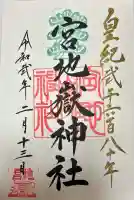 皇紀弐千六百八十年
宮地嶽神社
令和弐年二月十三日